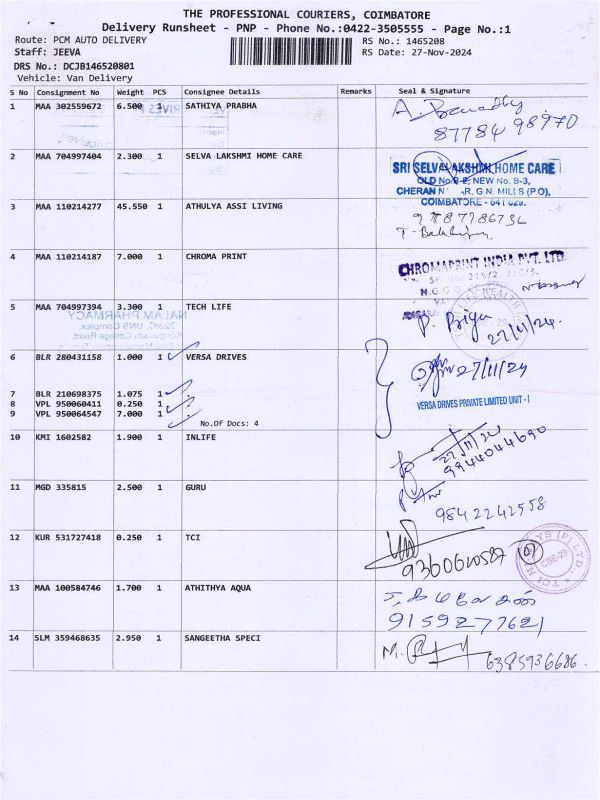 THE PROFESSIONAL COURIERS, COIMBATORE
Delivery Runsheet - PNP - Phone No.:0422-3505555 - Page No.:1
Route: PCM AUTO DELIVERY RS No.: 1465208
Staff: JEEVA RS Date: 27-Nov-2024
DRS No.: DCJB146520801
Vehicle: Van Delivery
S No Consignment No Weight PCS Consignee Details Remarks Seal & Signature
1 MAA 302559672 6.500 1 SATHIYA PRABHA
87784 98970
2 MAA 704997404 2.300 1 SELVA LAKSHMI HOME CARE
SRI SELVA LAKSHMI HOME CARE
OLD No. B-2, NEW No. B-3,
G.N. MILLS (P.O),
COIMBATORE - 641 029.
3 MAA 110214277 45.550 1 ATHULYA ASSI LIVING
4 MAA 110214187 7.000 1 CHROMA PRINT
CHROMAPRINT INDIA PVT. LTD.
5 MAA 704997394 3.300 1 TECH LIFE
P. Priya
27/11/24.
NALAM PHARMACY
UNS Complex,
College Road,
6 BLR 280431158 1.000 1 VERSA DRIVES
27/11/24
VERSA DRIVES PRIVATE LIMITED UNIT - I
7 BLR 210698375 1.075 1
8 VPL 950060411 0.250 1
9 VPL 950064547 7.000 1
No.Of Docs: 4
10 KMI 1602582 1.900 1 INLIFE
27/11/24
9944044690
11 MGD 335815 2.500 1 GURU
9842242558
12 KUR 531727418 0.250 1 TCI
9360610587
CBE-29
13 MAA 100584746 1.700 1 ATHITHYA AQUA
9159277621
14 SLM 359468635 2.950 1 SANGEETHA SPECI
6385936686.